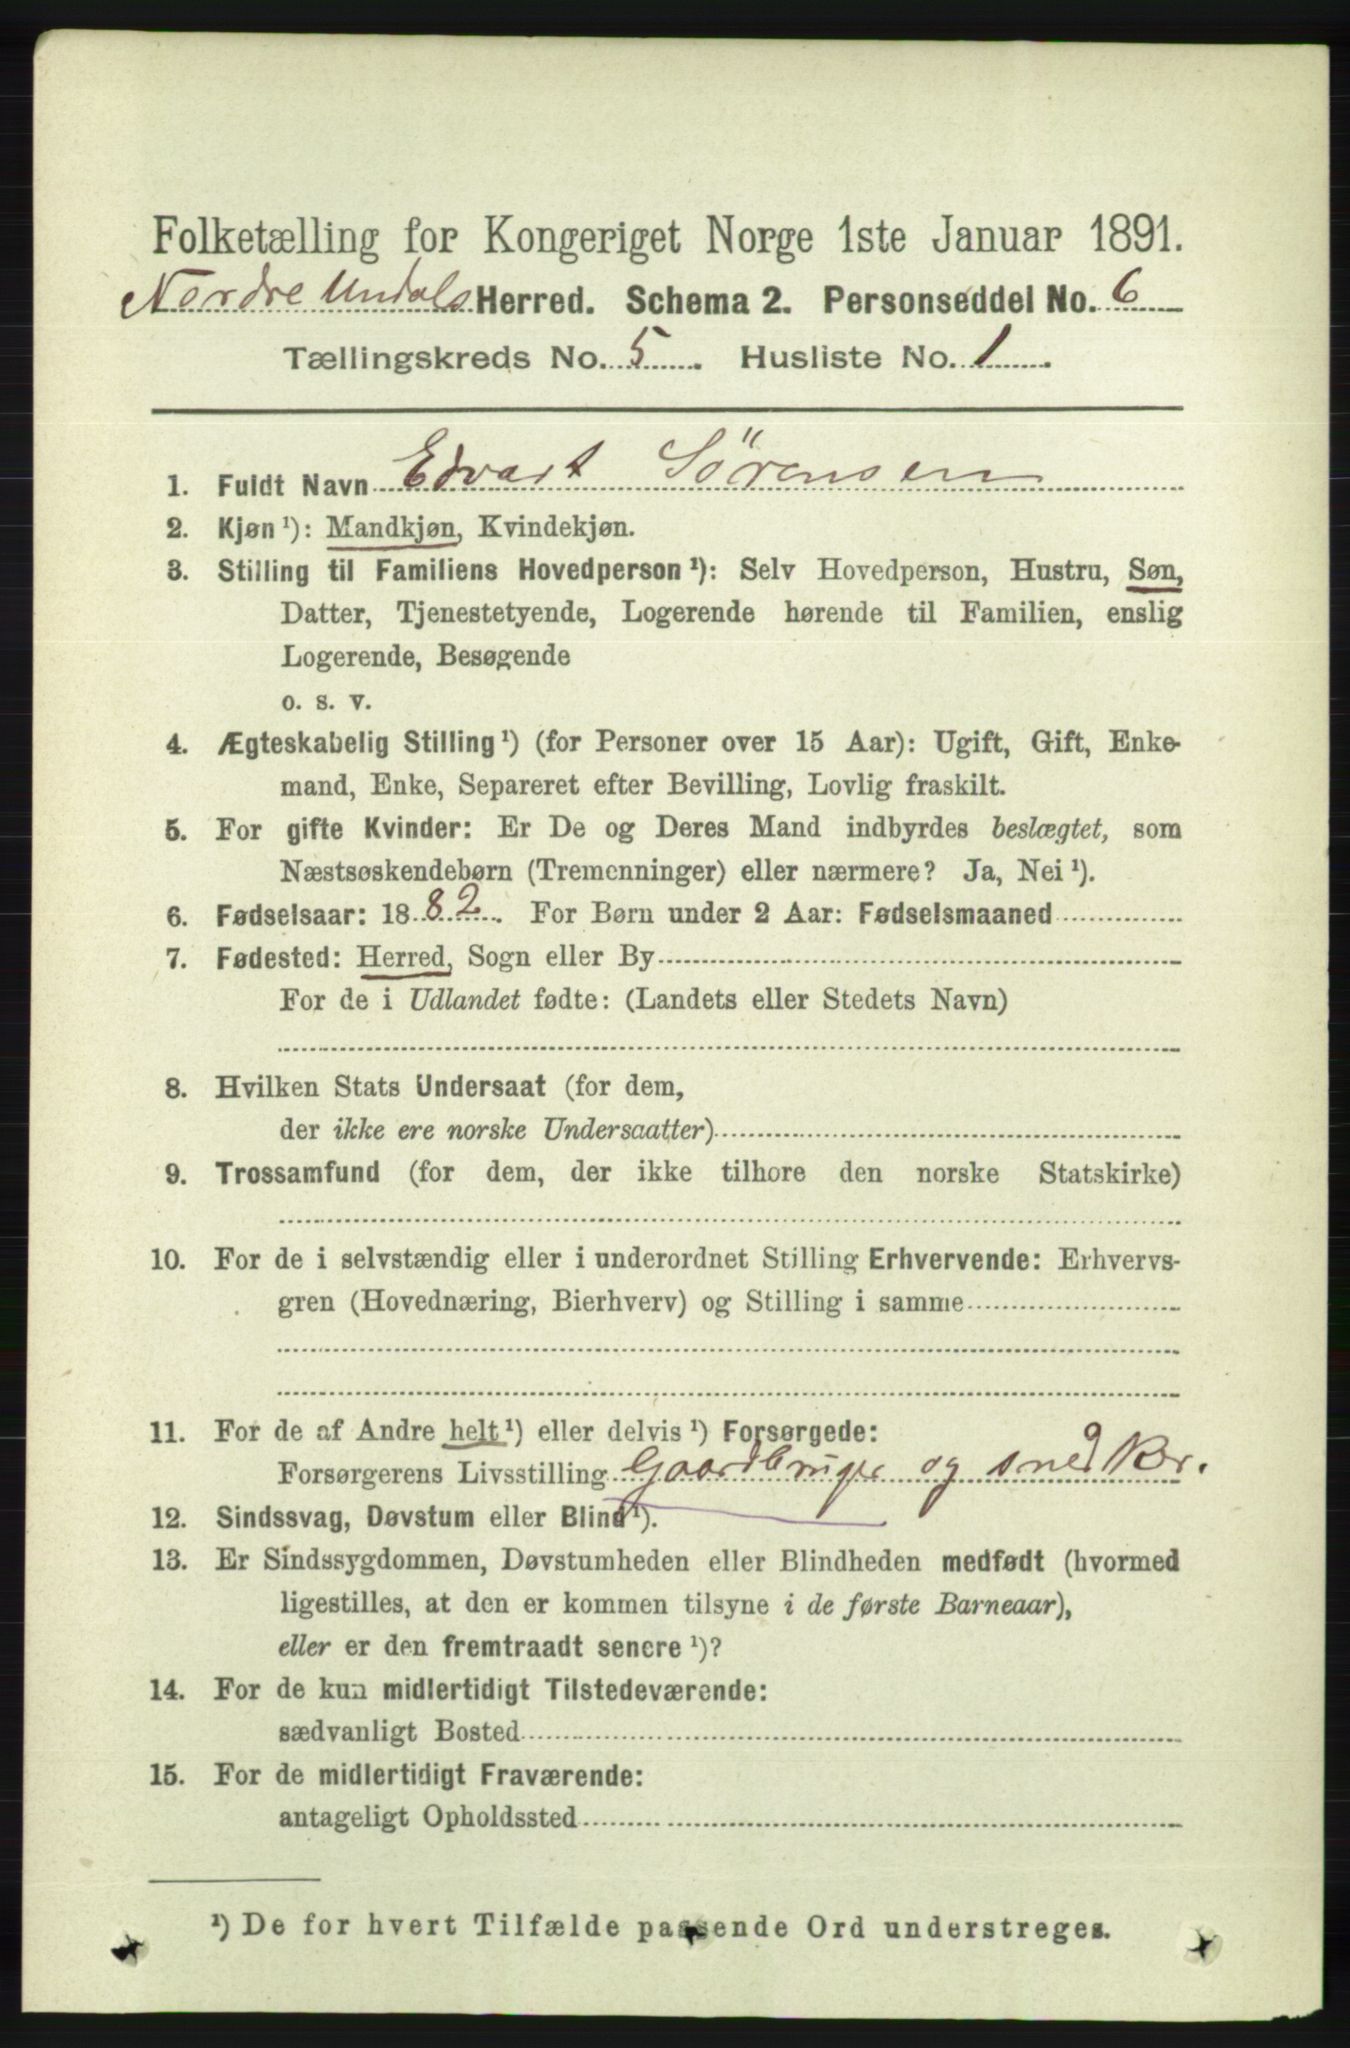 Folketælling for Kongeriget Norge 1ste Januar 1891.
Nordre Undals Herred. Schema 2. Personseddel No. 6
Tællingskreds No. 5. Husliste No. 1.
1. Fuldt Navn Edvart Sörensen
2. Kjøn ¹): Mandkjøn, Kvindekjøn.
3. Stilling til Familiens Hovedperson ¹): Selv Hovedperson, Hustru, Søn,
Datter, Tjenestetyende, Logerende hørende til Familien, enslig
Logerende, Besøgende
o. s. v.
4. Ægteskabelig Stilling ¹) (for Personer over 15 Aar): Ugift, Gift, Enke-
mand, Enke, Separeret efter Bevilling, Lovlig fraskilt.
5. For gifte Kvinder: Er De og Deres Mand indbyrdes beslægtet, som
Næstsøskendebørn (Tremenninger) eller nærmere? Ja, Nei ¹).
6. Fødselsaar: 1882. For Børn under 2 Aar: Fødselsmaaned
7. Fødested: Herred, Sogn eller By
For de i Udlandet fødte: (Landets eller Stedets Navn)
8. Hvilken Stats Undersaat (for dem,
der ikke ere norske Undersaatter)
9. Trossamfund (for dem, der ikke tilhøre den norske Statskirke)
10. For de i selvstændig eller i underordnet Stilling Erhvervende: Erhvervs-
gren (Hovednæring, Bierhverv) og Stilling i samme
11. For de af Andre helt ¹) eller delvis ¹) Forsørgede:
Forsørgerens Livsstilling Gaardbruger og snedker.
12. Sindssvag, Døvstum eller Blind ¹).
13. Er Sindssygdommen, Døvstumheden eller Blindheden medfødt (hvormed
ligestilles, at den er kommen tilsyne i de første Barneaar),
eller er den fremtraadt senere ¹)?
14. For de kun midlertidigt Tilstedeværende:
sædvanligt Bosted
15. For de midlertidigt Fraværende:
antageligt Opholdssted
¹) De for hvert Tilfælde passende Ord understreges.